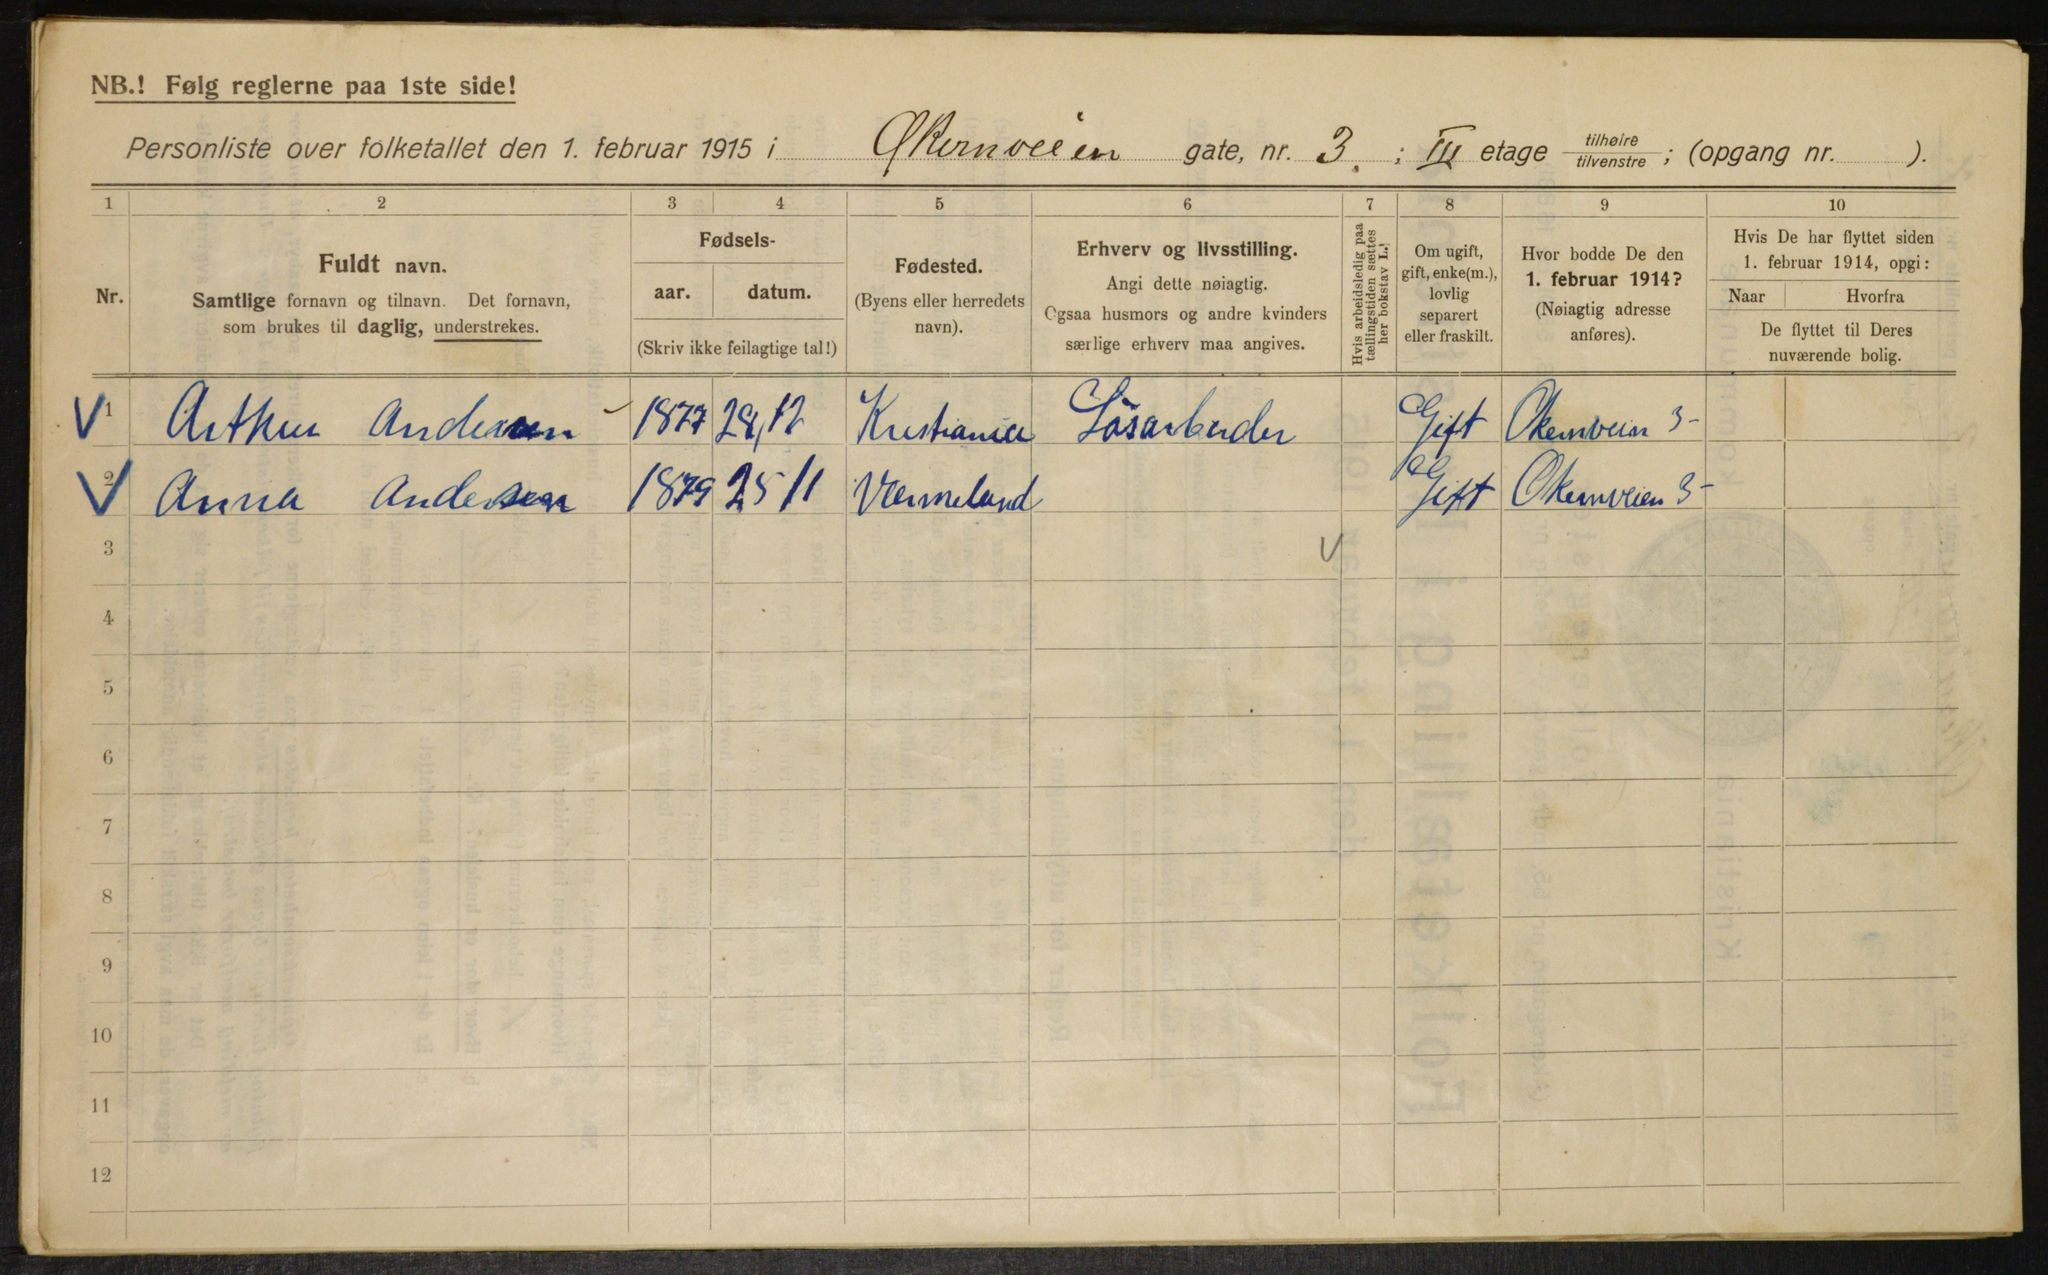 NB.! Følg reglerne paa 1ste side!
Personliste over folketallet den 1. februar 1915 i Økernveien gate, nr. 3. ; III etage tilhøire tilvenstre ; (opgang nr. ).
1 2 3 4 5 6 7 8 9 10
Nr.
Fuldt navn.
Samtlige fornavn og tilnavn. Det fornavn,
som brukes til daglig, understrekes.
Fødsels-
aar. datum.
(Skriv ikke feilagtige tal!)
Fødested.
(Byens eller herredets
navn).
Erhverv og livsstilling.
Angi dette nøiagtig.
Ogsaa husmors og andre kvinders
særlige erhverv maa angives.
Hvis arbeidsledig paa
tællingstiden sættes
her bokstav L.!
Om ugift,
gift, enke(m.),
lovlig
separert
eller fraskilt.
Hvor bodde De den
1. februar 1914?
(Nøiagtig adresse
anføres).
Hvis De har flyttet siden
1. februar 1914, opgi:
Naar Hvorfra
De flyttet til Deres
nuværende bolig.
1 Arthur Andersen 1877 28/12 Kristiania Løsarbeider Gift Økernveien 3
2 Anna Andersen 1879 25/1 Värmeland Gift Økernveien 3
3
4
5
6
7
8
9
10
11
12